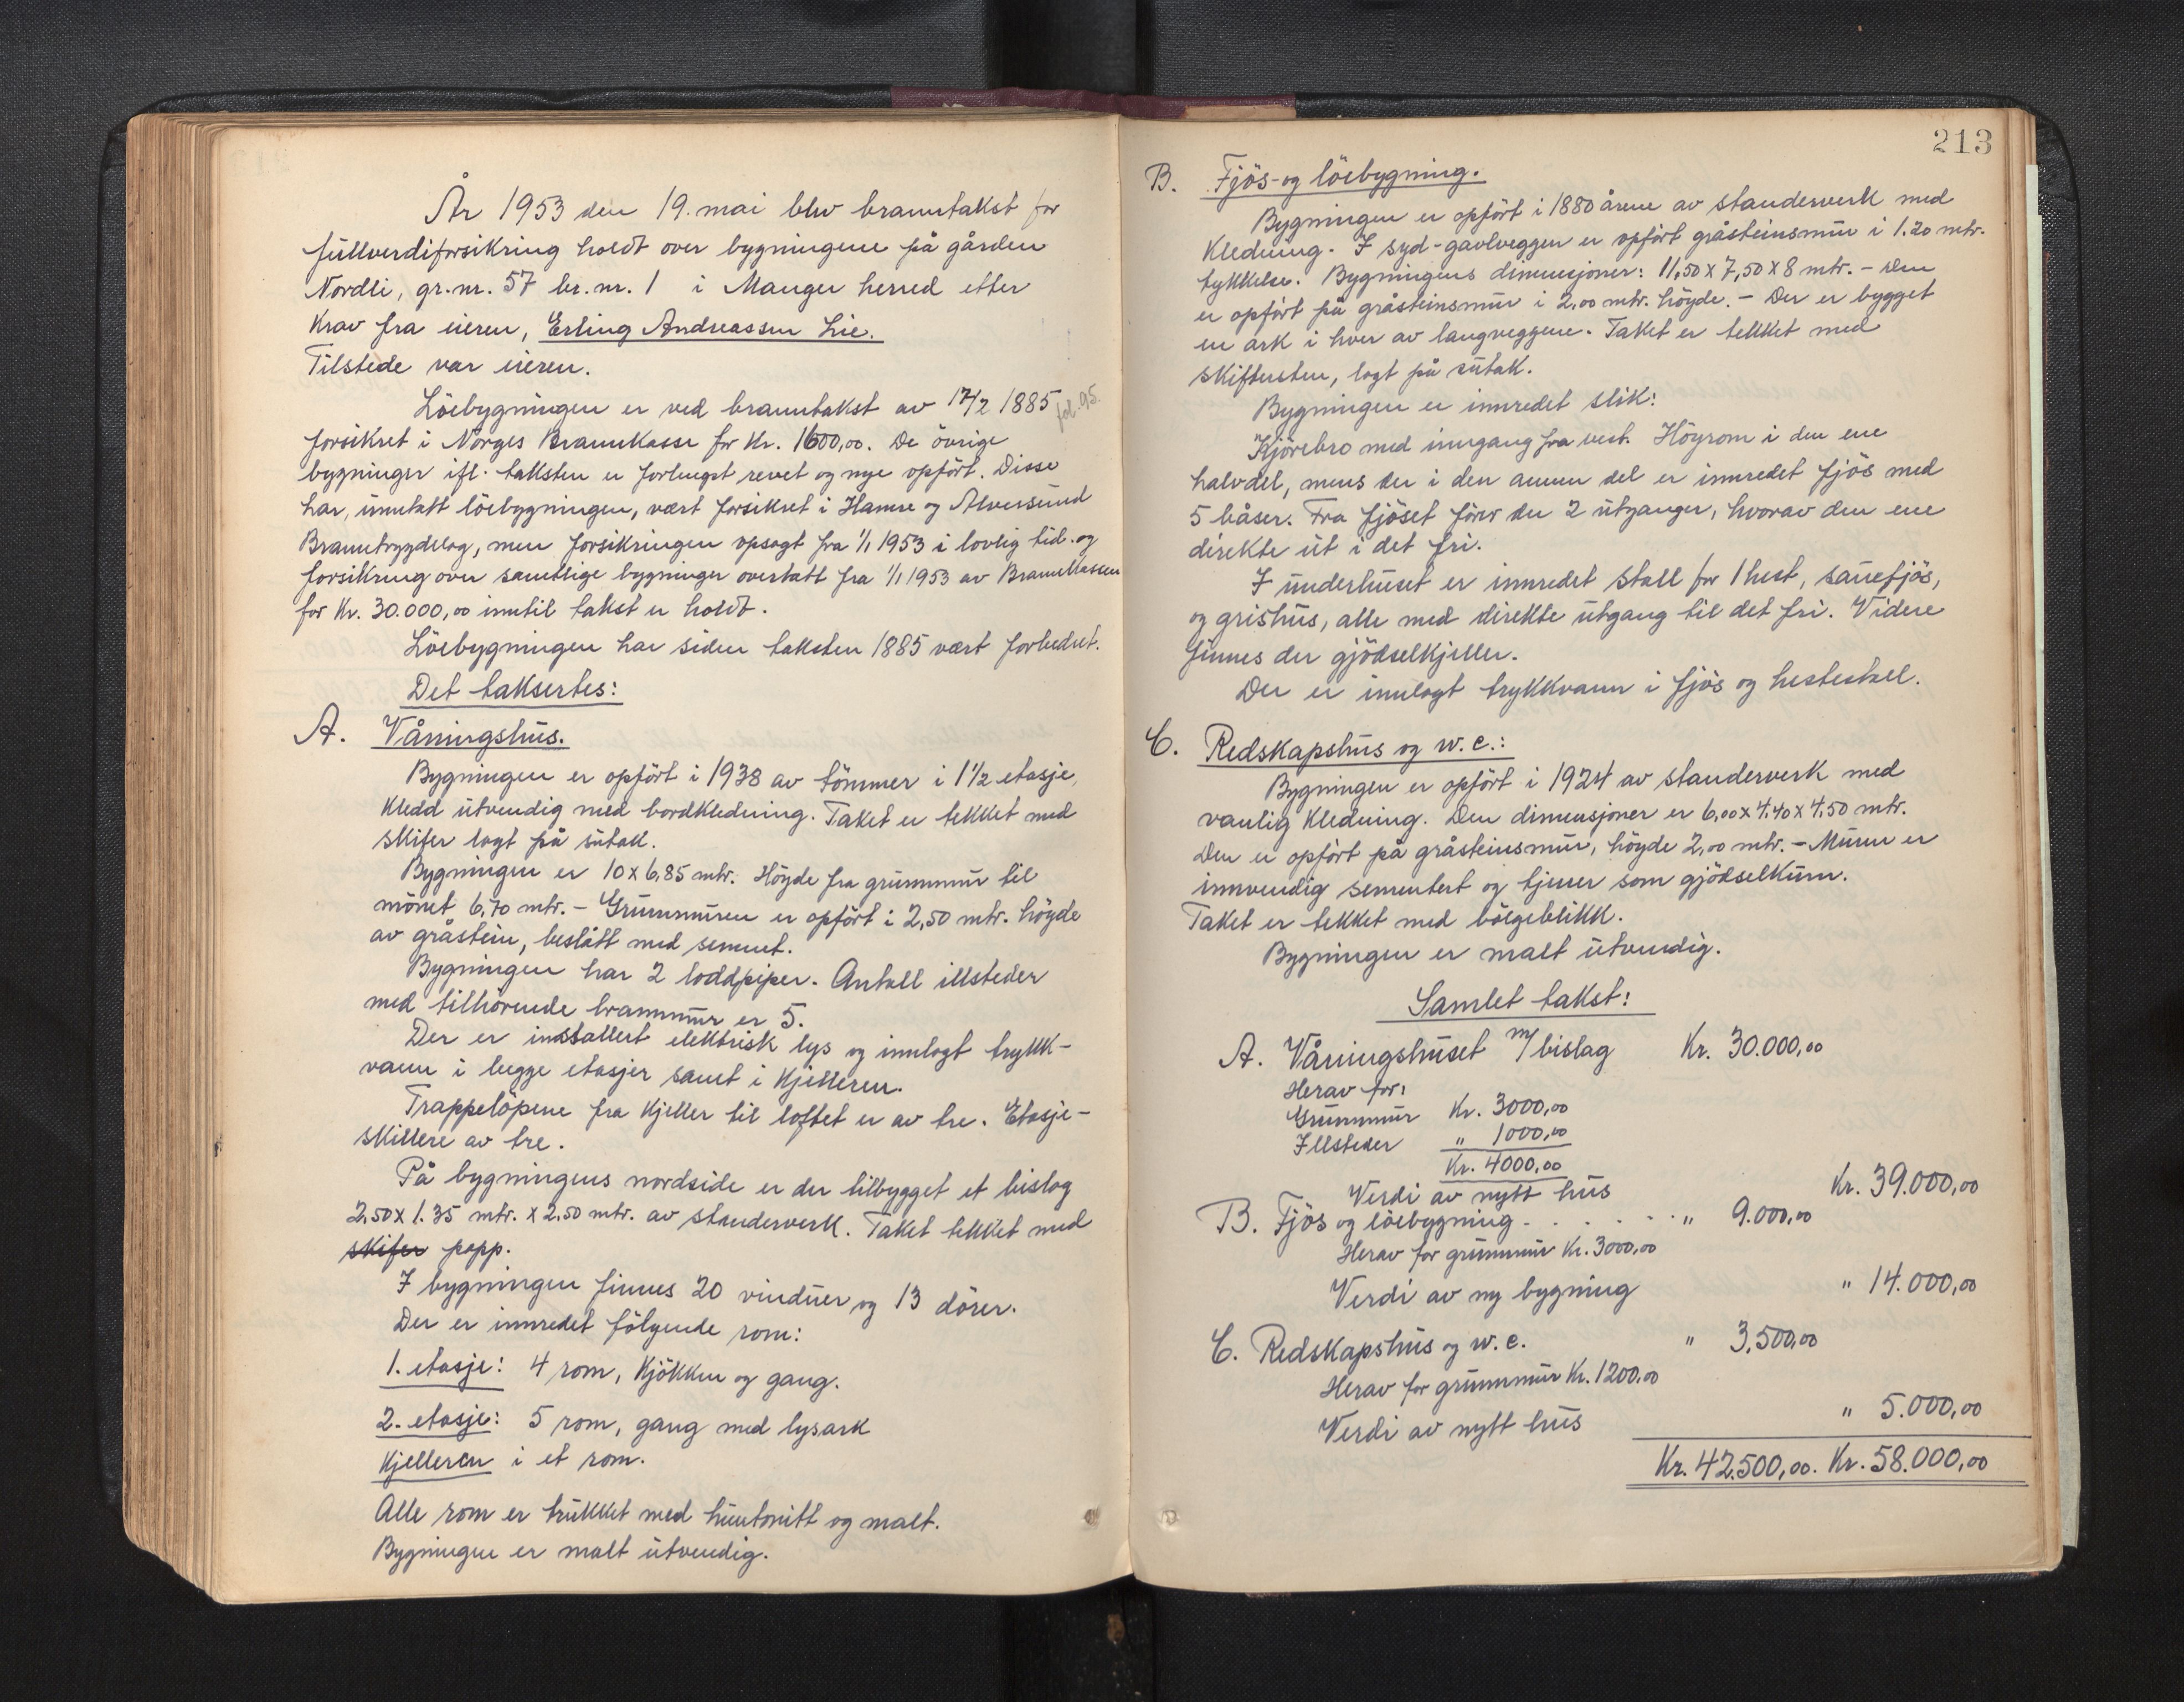 År 1953 den 19. mai blev branntakst for
fullverdiforsikring holdt over bygningene på gården
Nordli, gr.nr. 57 br.nr. 1 i Manger herred etter
krav fra eieren, Erling Andreassen Lie.
Tilstede var eieren.
Löebygningen er ved branntakst av 17/2 1885 fol. 95.
forsikret i Norges Brannkasse for Kr. 1600,00. De övrige
bygninger ifl. taksten er forlengst revet og nye opfört. Disse
har, unntatt löebygningen, vært forsikret i Hamre og Alversund
Branntrygdelag, men forsikringen opsagt fra 1/1 1953 i lovlig tid. og
forsikring over samtlige bygninger overtatt fra 1/1 1953 av Brannkassen
for Kr. 30.000,00 inntil takst er holdt.
Löebygningen har siden taksten 1885 vært forbedret.
Det taksertes:
A. Våningshus.
Bygningen er opfört i 1938 av tömmer i 1 1/2 etasje,
kledd utvendig med bordkledning. Taket er tekket med
skifer lagt på sutak.
Bygningen er 10 x 6,85 mtr. Höyde fra grunnmur til
mönet 6,70 mtr. - Grunnmuren er opfört i 2,50 mtr. höyde
av gråstein, beslått med sement.
Bygningen har 2 loddpiper. Antall illsteder
med tilhörende brannmur er 5.
Der er installert elektrisk lys og innlagt trykk-
vann i begge etasjer samt i kjelleren.
Trappelöpene fra kjeller til loftet er av tre. Etasje-
skillere av tre.
På bygningens nordside er der tilbygget et bislag
2,50 x 1.35 mtr. x 2,50 mtr. av standerverk. Taket tekket med
skifer papp.
I bygningen finnes 20 vinduer og 13 dörer.
Der er innredet fölgende rom:
1. etasje: 4 rom, kjökken og gang.
2. etasje: 5 rom, gang med lysark
Kjelleren i et rom.
Alle rom er trukket med huntonitt og malt.
Bygningen er malt utvendig.
213
B. Fjös- og löebygning.
Bygningen er opfört i 1880 årene av standerverk med
kledning. I syd-gavlveggen er opfört gråsteinsmur i 1.20 mtr.
tykkelse. Bygningens dimensjoner: 11,50 x 7,50 x 8 mtr. - Den
er opfört på gråsteinsmur i 2,00 mtr. höyde. - Der er bygget
en ark i hver av langveggene. Taket er tekket med
skifersten, lagt på sutak.
Bygningen er innredet slik:
Kjörebro med inngang fra vest. Höyrom i den ene
halvdel, mens der i den annen del er innredet fjös med
5 båser. Fra fjöset förer der 2 utganger, hvorav den ene
direkte ut i det fri.
I underhuset er innredet stall for 1 hest, sauefjös,
og grishus, alle med direkte utgang til det fri. Videre
finnes der gjödselkjeller.
Der er innlagt trykkvann i fjös og hestestal.
C. Redskapshus og w.c.:
Bygningen er opfört i 1924 av standerverk med
vanlig kledning. Den dimensjoner er 6,00 x 4,40 x 4,50 mtr.
Den er opfört på gråsteinsmur, höyde 2,00 mtr. - Muren er
innvendig sementert og tjener som gjödselkum.
Taket er tekket med bölgeblikk.
Bygningen er malt utvendig.
Samlet takst:
A. Våningshuset m/bislag Kr. 30.000,00
Herav for:
Grunnmur Kr. 3000,00
Illsteder " 1000,00
Kr. 4000,00
Verdi av nytt hus Kr. 39.000,00
B. Fjös og löebygning . . . . . . " 9.000,00
Herav for grunnmur Kr. 3000,00
Verdi av ny bygning " 14.000,00
C. Redskapshus og w.c. " 3,500,00
Herav for grunnmur Kr. 1200,00
Verdi av nytt hus " 5.000,00
Kr. 42.500,00. Kr. 58.000,00